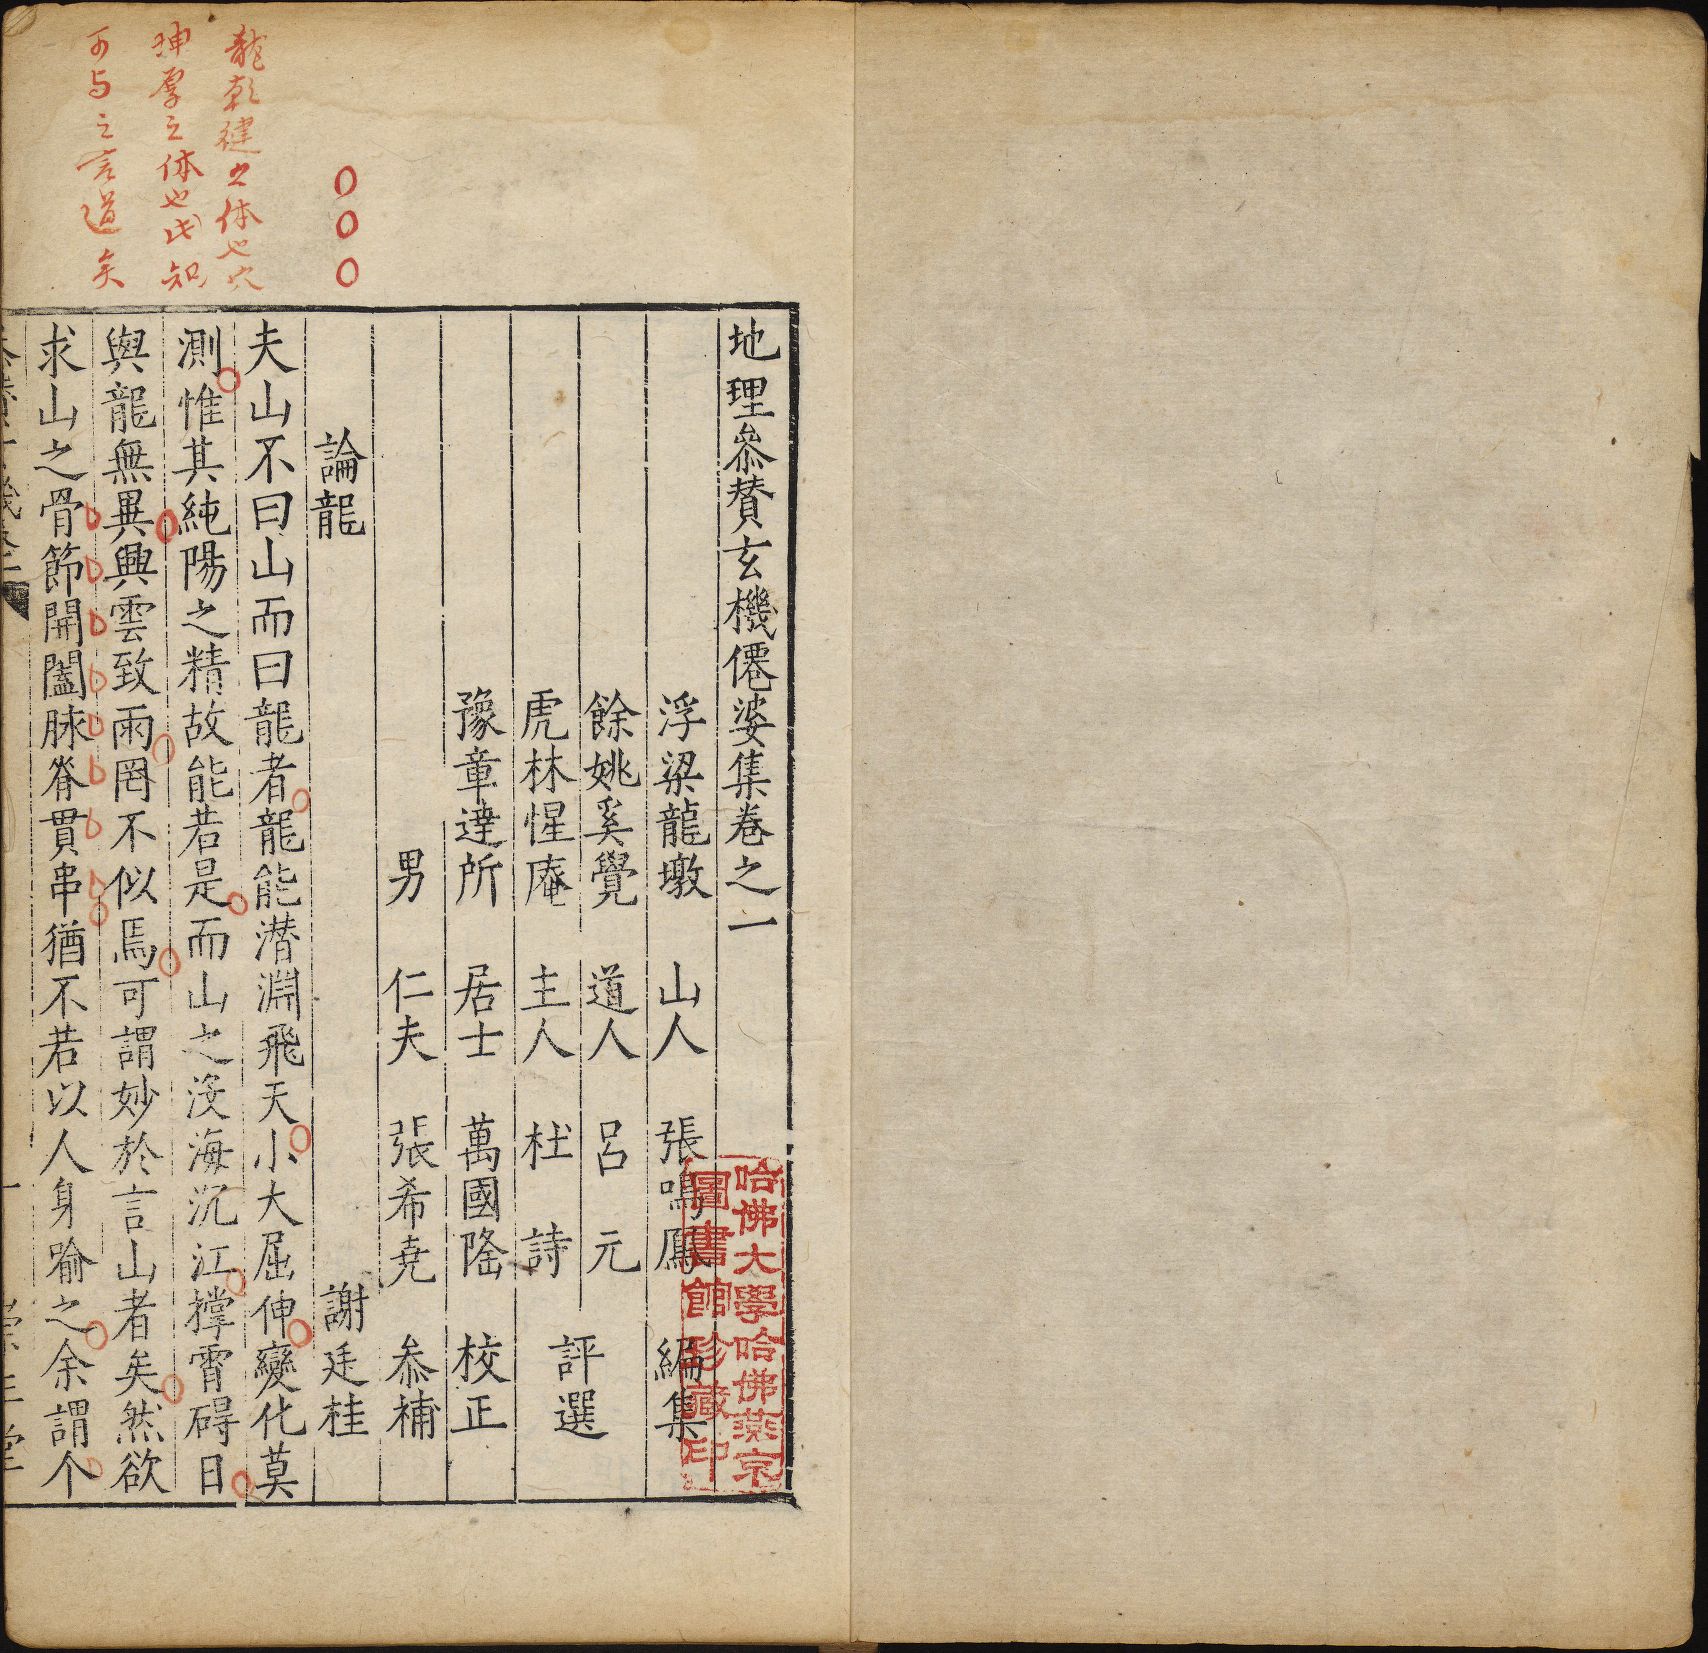 地理叅賛玄機僊婆集卷之一
浮梁龍墩 山人 張鳴鳳 編集
餘姚奚覺 道人 呂元
評選
虎林惺庵 主人 杜詩
豫章達所 居士 萬國隆 校正
男 仁夫 張希堯 叅補
論龍 謝廷桂
夫山不曰山而曰龍者龍能潜淵飛天小大屈伸變化莫
測惟其純陽之精故能若是而山之沒海沉江撑霄碍日
與龍無異興雲致雨罔不似焉可謂妙於言山者矣然欲
求山之骨節開闔脉脊貫串猶不若以人身喻之余謂个
龍乾健之体也穴
坤厚之体也此知
可与之言道矣
哈佛大學哈佛燕京
圖書館珍藏印